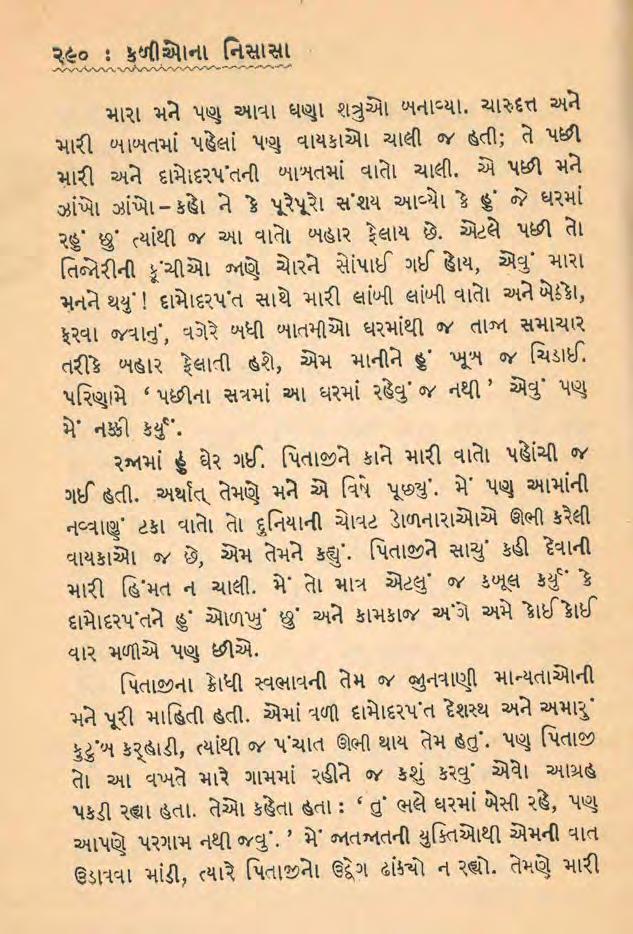 ૨૯૦ : કળીઓના નિસાસા
મારા મને પણ આવા ઘણા શત્રુઓ બનાવ્યા. ચારુદત્ત અને
મારી બાબતમાં પહેલાં પણ વાયકાઓ ચાલી જ હતી; તે પછી
મારી અને દામોદરપંતની બાબતમાં વાતો ચાલી. એ પછી મને
ઝાંખો ઝાંખો – કહો ને કે પૂરેપૂરો સંશય આવ્યો કે હું જે ઘરમાં
રહું છું ત્યાંથી જ આ વાતો બહાર ફેલાય છે. એટલે પછી તો
તિજોરીની કૂંચીઓ જાણે ચોરને સોંપાઈ ગઈ હોય, એવું મારા
મનને થયું! દામોદરપંત સાથે મારી લાંબી લાંબી વાતો અને બેઠકો,
ફરવા જવાનું, વગેરે બધી બાતમીઓ ઘરમાંથી જ તાજા સમાચાર
તરીકે બહાર ફેલાતી હશે, એમ માનીને હું ખૂબ જ ચિડાઈ.
પરિણામે ‘ પછીના સત્રમાં આ ઘરમાં રહેવું જ નથી ’ એવું પણ
મેં નક્કી કર્યું.
રજામાં હું ઘેર ગઈ. પિતાજીને કાને મારી વાતો પહોંચી જ
ગઈ હતી. અર્થાત્ તેમણે મને એ વિષે પૂછ્યું. મેં પણ આમાંની
નવ્વાણું ટકા વાતો તો દુનિયાની ચોવટ ડોળનારાઓએ ઊભી કરેલી
વાયકાઓ જ છે, એમ તેમને કહ્યું. પિતાજીને સાચું કહી દેવાની
મારી હિંમત ન ચાલી. મેં તો માત્ર એટલું જ કબૂલ કર્યું કે
દામોદરપંતને હું ઓળખું છું અને કામકાજ અંગે અમે કોઈ કોઈ
વાર મળીએ પણ છીએ.
પિતાજીના ક્રોધી સ્વભાવની તેમ જ જુનવાણી માન્યતાઓની
મને પૂરી માહિતી હતી. એમાં વળી દામોદરપંત દેશસ્થ અને અમારું
કુટુંબ કર્‌હાડી, ત્યાંથી જ પંચાત ઊભી થાય તેમ હતું. પણ પિતાજી
તો આ વખતે મારે ગામમાં રહીને જ કશું કરવું એવો આગ્રહ
પકડી રહ્યા હતા. તેઓ કહેતા હતા : ‘ તું ભલે ઘરમાં બેસી રહે, પણ
આપણે પરગામ નથી જવું. ’ મેં જાતજાતની યુક્તિઓથી એમની વાત
ઉડાવવા માંડી, ત્યારે પિતાજીનો ઉદ્વેગ ઢાંક્યો ન રહ્યો. તેમણે મારી